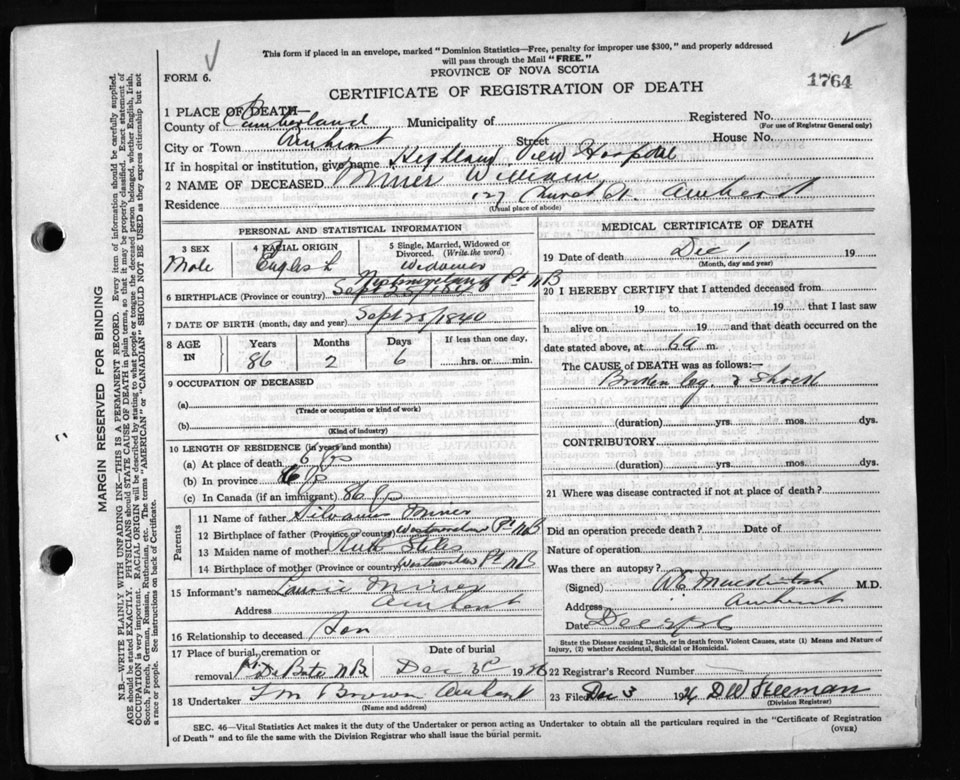 This form if placed in an envelope, marked "Dominion Statistics—Free, penalty for improper use $300," and properly addressed
will pass through the Mail "FREE."
FORM 6.
PROVINCE OF NOVA SCOTIA
1764
CERTIFICATE OF REGISTRATION OF DEATH
1 PLACE OF DEATH—
County of Cumberland Municipality of Registered No.
(For use of Registrar General only)
City or Town Amherst Street House No.
If in hospital or institution, give name Highland View Hospital
2 NAME OF DECEASED Miner William
Residence 127 Church St. Amherst
(Usual place of abode)
PERSONAL AND STATISTICAL INFORMATION
3 SEX
Male
4 RACIAL ORIGIN
English
5 Single, Married, Widowed or Divorced. (Write the word)
Widower
6 BIRTHPLACE (Province or country) Westmoreland Pt NB
7 DATE OF BIRTH (month, day and year) Sept 25/1840
8 AGE IN
Years 86
Months 2
Days 6
If less than one day, hrs. or min.
9 OCCUPATION OF DECEASED
(a)
(Trade or occupation or kind of work)
(b)
(Kind of industry)
10 LENGTH OF RESIDENCE (in years and months)
(a) At place of death 6 yrs
(b) In province 6 yrs
(c) In Canada (if an immigrant) 86 yrs
Parents
11 Name of father Silvanus Miner
12 Birthplace of father (Province or country) Westmoreland Pt NB
13 Maiden name of mother Ruth
14 Birthplace of mother (Province or country) Westmoreland Pt NB
15 Informant's name Laurie Miner
Address Amherst
16 Relationship to deceased Son
17 Place of burial, cremation or removal NB
Date of burial
Dec 3 1926
18 Undertaker Brown Amherst
(Name and address)
MEDICAL CERTIFICATE OF DEATH
19 Date of death Dec 1 19
(Month, day and year)
20 I HEREBY CERTIFY that I attended deceased from
19 to 19 that I last saw
h alive on 19 and that death occurred on
date stated above, at 6 a m.
The CAUSE OF DEATH was as follows:—
Broken leg & Shock
(duration) yrs. mos. dys.
CONTRIBUTORY
(duration) yrs. mos. dys.
21 Where was disease contracted if not at place of death?
Did an operation precede death? Date of
Nature of operation
Was there an autopsy?
(Signed) W E Mackintosh M.D.
Address Amherst
Date Dec
State the Disease causing Death, or in death from Violent Causes, state (1) Means and Nature of
Injury, (2) whether Accidental, Suicidal or Homicidal.
22 Registrar's Record Number
23 Filed Dec 3 1926 D W Freeman
(Division Registrar)
SEC. 46—Vital Statistics Act makes it the duty of the Undertaker or person acting as Undertaker to obtain all the particulars required in the "Certificate of Registration
of Death" and to file the same with the Division Registrar who shall issue the burial permit.
(OVER)
MARGIN RESERVED FOR BINDING
N.B.—WRITE PLAINLY WITH UNFADING INK—THIS IS A PERMANENT RECORD. Every item of information should be carefully supplied.
AGE should be stated EXACTLY. PHYSICIANS should STATE CAUSE OF DEATH in plain terms, so that it may be properly classified. Exact statement of
OCCUPATION is very important. RACIAL ORIGIN will be described by stating to what people or tongue the deceased person belonged, whether English, Irish,
Scotch, French, German, Russian, Ruthenian, etc. The terms "AMERICAN" or "CANADIAN" SHOULD NOT BE USED as they express citizenship but not
a race or people. See instructions on back of Certificate.